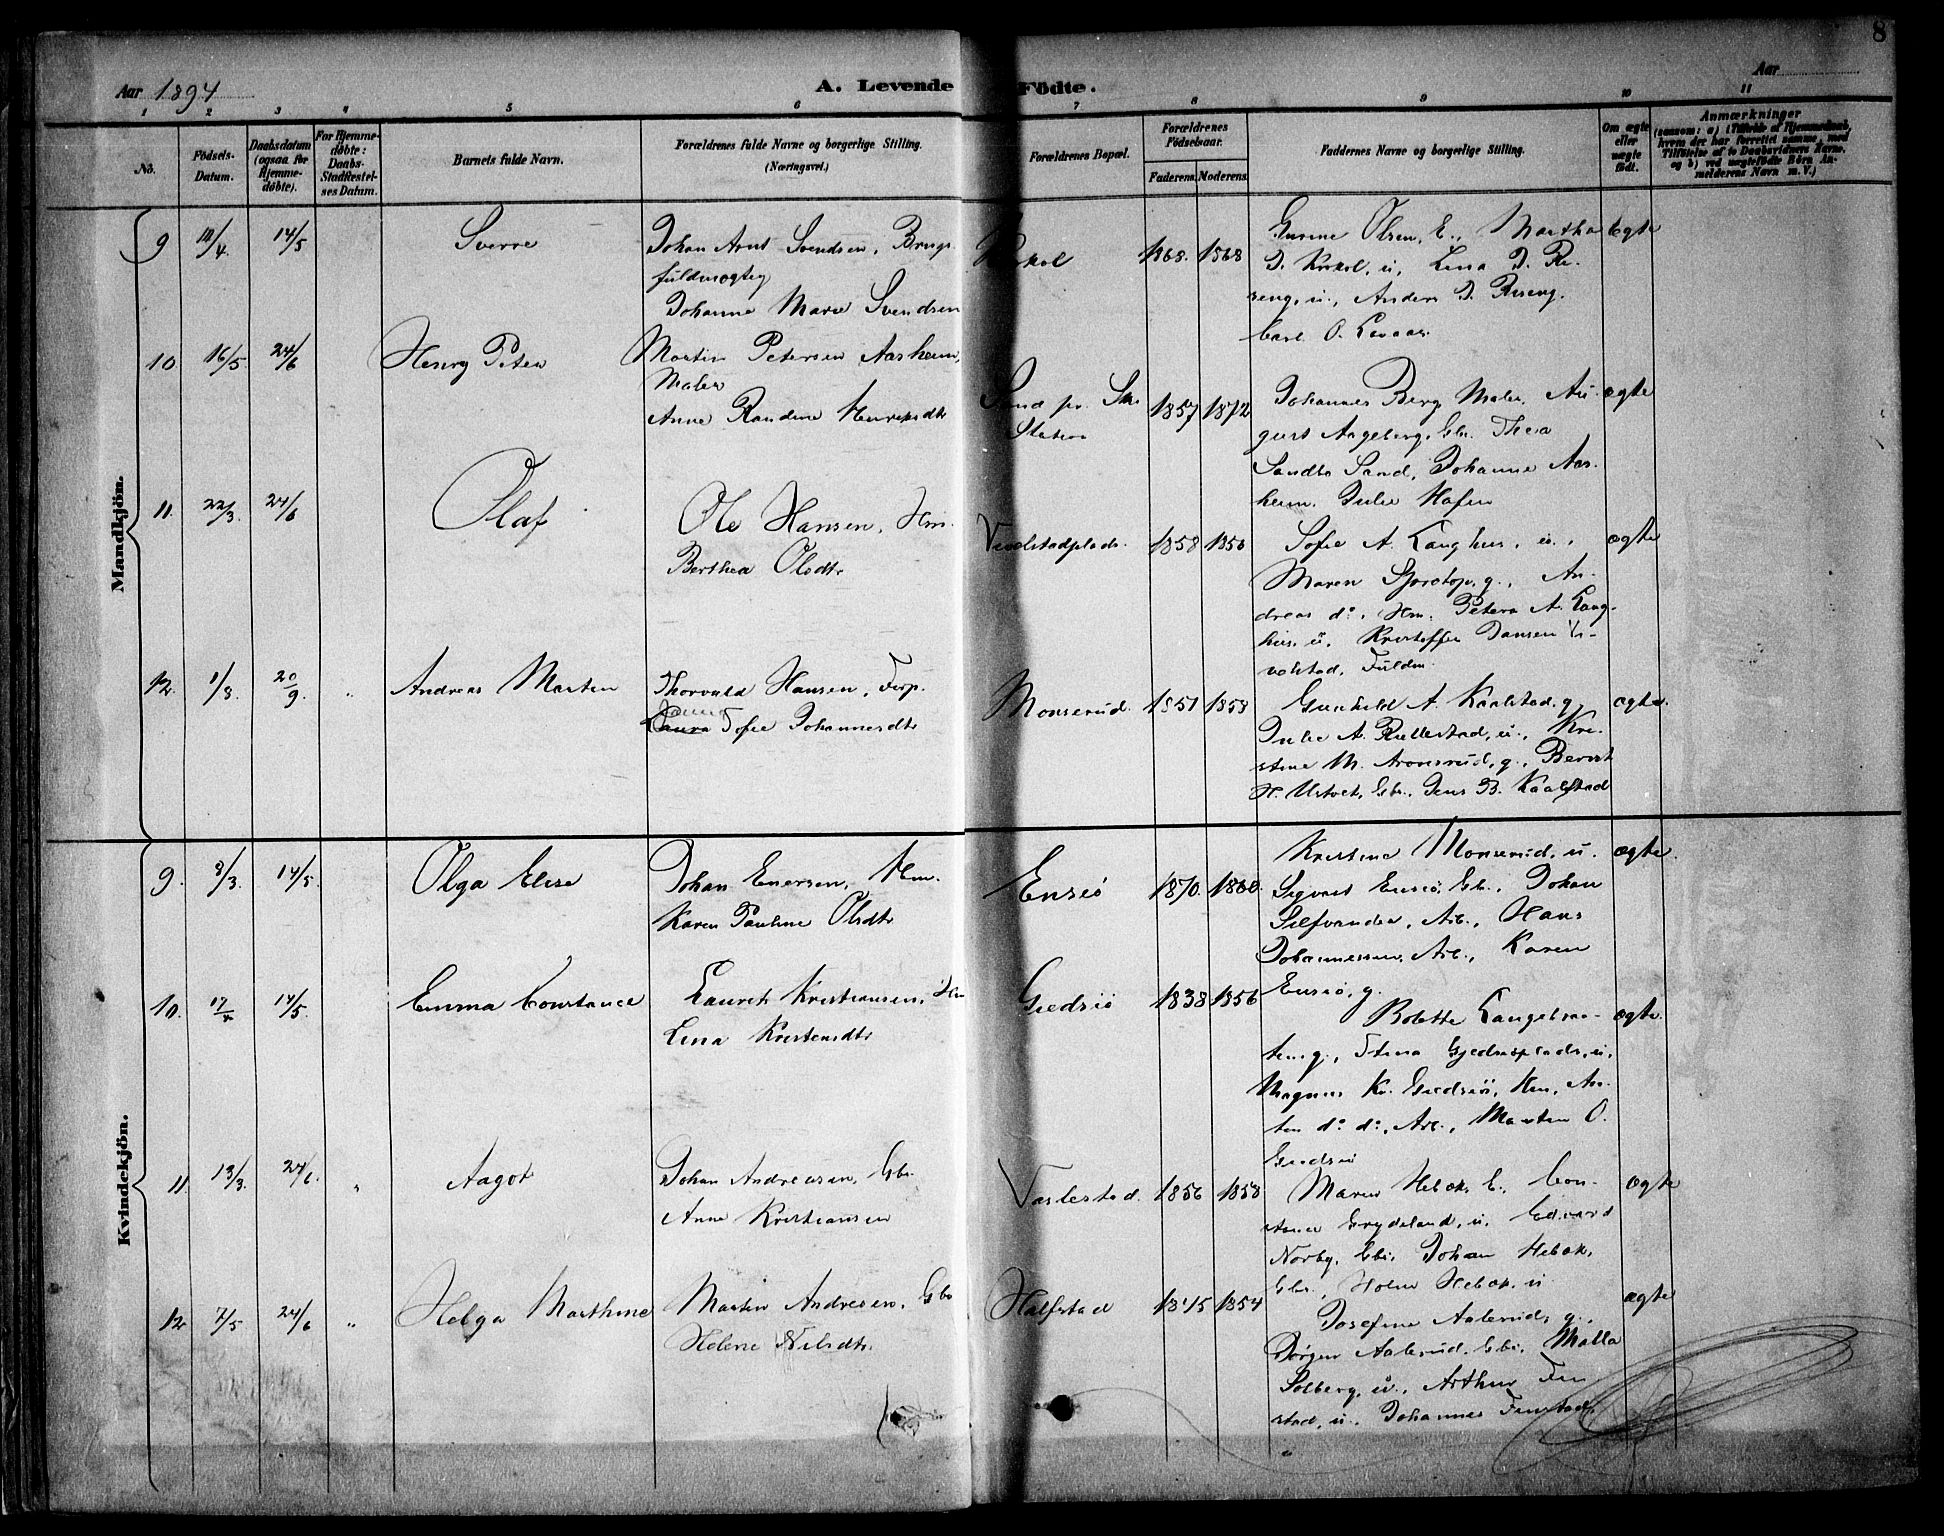 8
Aar 1894
A. Levende Födte.
Aar
1 2 3 4 5 6 7 8 9 10 11
No.
Födsels-Datum.
Daabsdatum (ogsaa for Hjemme-döbte).
For Hjemme-döbte: Daabs-Stadfæstel-ses Datum.
Barnets fulde Navn.
Forældrenes fulde Navne og borgerlige Stilling.
(Næringsvei.)
Forældrenes Bopæl.
Forældrenes Födselsaar.
Faderens. Moderens.
Faddernes Navne og borgerlige Stilling.
Om ægte eller uægte födt.
Anmærkninger
Mandkjön.
9 14/4. 14/5 Sverre
Johan Arnt Svendsen, Brugs-
fuldmægtig
Johanne Marie Svendsen
1868. 1868
Olsen, E., Martha
Lina D. Ri-
seng, u., Anders D. Riseng.
Carl O.
ægte
10 16/5 24/6 Henry Peter
Martin Petersen Aasheim,
Maler
Anne Randine Henriksdtr
Sand pr. Ski
Station
1857 1872
Johannes Berg Maler, Au-
gust Aageberg, Gbr. Thea
Sandbo Sand, Johanne Aas-
heim. Julie Hafen
ægte
11. 22/3. 24/6 Olaf
Ole Hansen, Hm.
Berthea Olsdtr
Vevelstadplads. 1858 1850
Sofie A. Langhus, u.,
Maren g., An-
dreas do., Hm. Petera A. Lang-
hus, u., Kristoffer Jansen Ve-
velstad, Fuldm.
ægte
12. 1/8. 20/9. " Andreas Martin
Thorvald Hansen, Forp.
Laura Sofie Johannesdtr
Monserud. 1851 1858
Gunhild A. Kaalstad, g.
Julie A. Rullestad, u., Kri-
stine M. Aronsrud, g., Bernt
H. Ustvet, Gbr., Jens B. Kaalstad
ægte.
Kvindekjön.
9. 8/3. 14/5. Olga Elise
Johan Enersen, Hm.
Karen Pauline Olsdtr
Ensiö 1870. 1860.
Kristine Monserud, u.
Sigvart Ensiö, Gbr., Johan
Silfvander, Arb., Hans
Johannessen, Arb., Karen
Ensiö, g.
ægte.
10. 17/4 14/5. Emma Constance
Laurits Kristiansen, Hm
Lina Kristensdtr
Gjedsiö 1838 1856
Bolette Langebraa-
ten, g., Stina Gjedsiöplads, u.,
Magnus Kr. Gjedsiö, Hm, An-
ton do. do., Arb., Martin O.
Gjedsiö
ægte.
11. 13/3. 24/6. " Aagot
Johan Andreasen, Gbr.
Anne Kristiansen
Vaslestad. 1856 1858
Maren Hebæk, E., Con-
stance Grydeland, u. Edvard
Norby, Gbr. Johan Hebæk,
Gbr., Holm Hebæk, u
ægte
12 7/5 24/6 " Helga Marthine
Martin Andresen, Gbr
Helene Nilsdtr.
Halfstad 1845 1854
Josefine Aalerud, g.,
Jörgen Aalerud, Gbr. Malla
Solberg, u., Arthur Fin-
stad, u., Johannes Finstad,
ægte